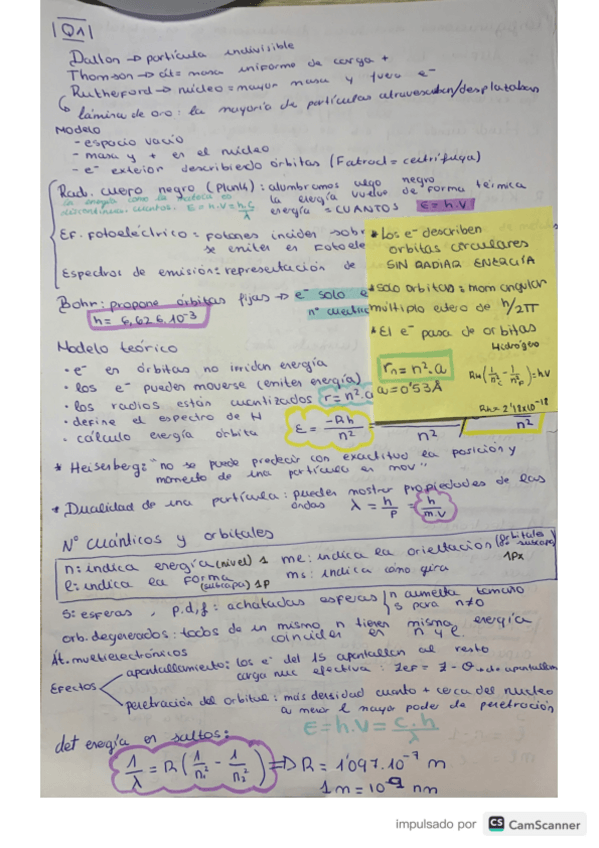 |Q1|
Dalton → partícula indivisible
Thomson → át = masa uniforme de carga +
Rutherford → núcleo = mayor masa y fuera e⁻
lámina de oro: la mayoría de partículas atravesaban/desplataban
Modelo
- espacio vacío
- masa y + en el núcleo
- e⁻ exterior describiendo órbitas (Fatrad = centrífuga)
Rad. cuerpo negro (Plank): alumbramos algo negro
la energía vuelve de forma térmica
la energía como la materia es
discontinua. cuantos. E = h.V = h.c/λ
energía = CUANTOS E = h.V
Ef. Fotoeléctrico = fotones inciden sobr
se emiten en Fotoele
Espectros de emisión = representación de
Bohr: propone órbitas fijas → e⁻ solo e
nº cuántic
h = 6,626.10⁻³
Modelo teórico
• e⁻ en órbitas no irridan energía
• los e⁻ pueden moverse (emiten energía)
• los radios están cuantizados r = n².a
• define el espectro de H
• cálculo energía órbita
E = -Rh/n²
n²
n²
• Los e⁻ describen
orbitas circulares
SIN RADIAR ENERGÍA
• Solo orbitas: mom angular
múltiplo entero de h/2π
• El e⁻ pasa de orbitas
Hidrógeno
rn = n².a
a = 0'53 Å
RH (1/n² - 1/n²) = h.V
Rh = 2'18x10⁻¹⁸
* Heisenberg: "no se puede predecir con exactitud la posición y
momento de una partícula en mov"
* Dualidad de una partícula: pueden mostrar propiedades de las
ondas λ = h/p = h/m.v
Nº cuánticos y orbitales
n: indica energía (nivel) 1 me: indica la orientación (orbitales subcapa)
1Px
l: indica la forma (subcapa) 1p ms: indica cómo gira
S: esferas, p.d.f: achatadas esferas n aumenta tamaño
s para n≠0
orb. degenerados: todos de un mismo n tienen misma energía
coinciden en n y l.
Át. multielectrónicos
Efectos
apantallamiento: los e⁻ del 1S apantallan al resto
carga nuc efectiva: Zef = Z - σ → de apantallam
penetración del orbital: más densidad cuanto + cerca del núcleo
a menor l mayor poder de penetración
E = h.V = c.h/λ
det energía en saltos:
1/λ = R (1/n₁² - 1/n₂²) ⇒ R = 1'097.10⁻⁷ m
1m = 10⁻⁹ nm
impulsado por CS CamScanner